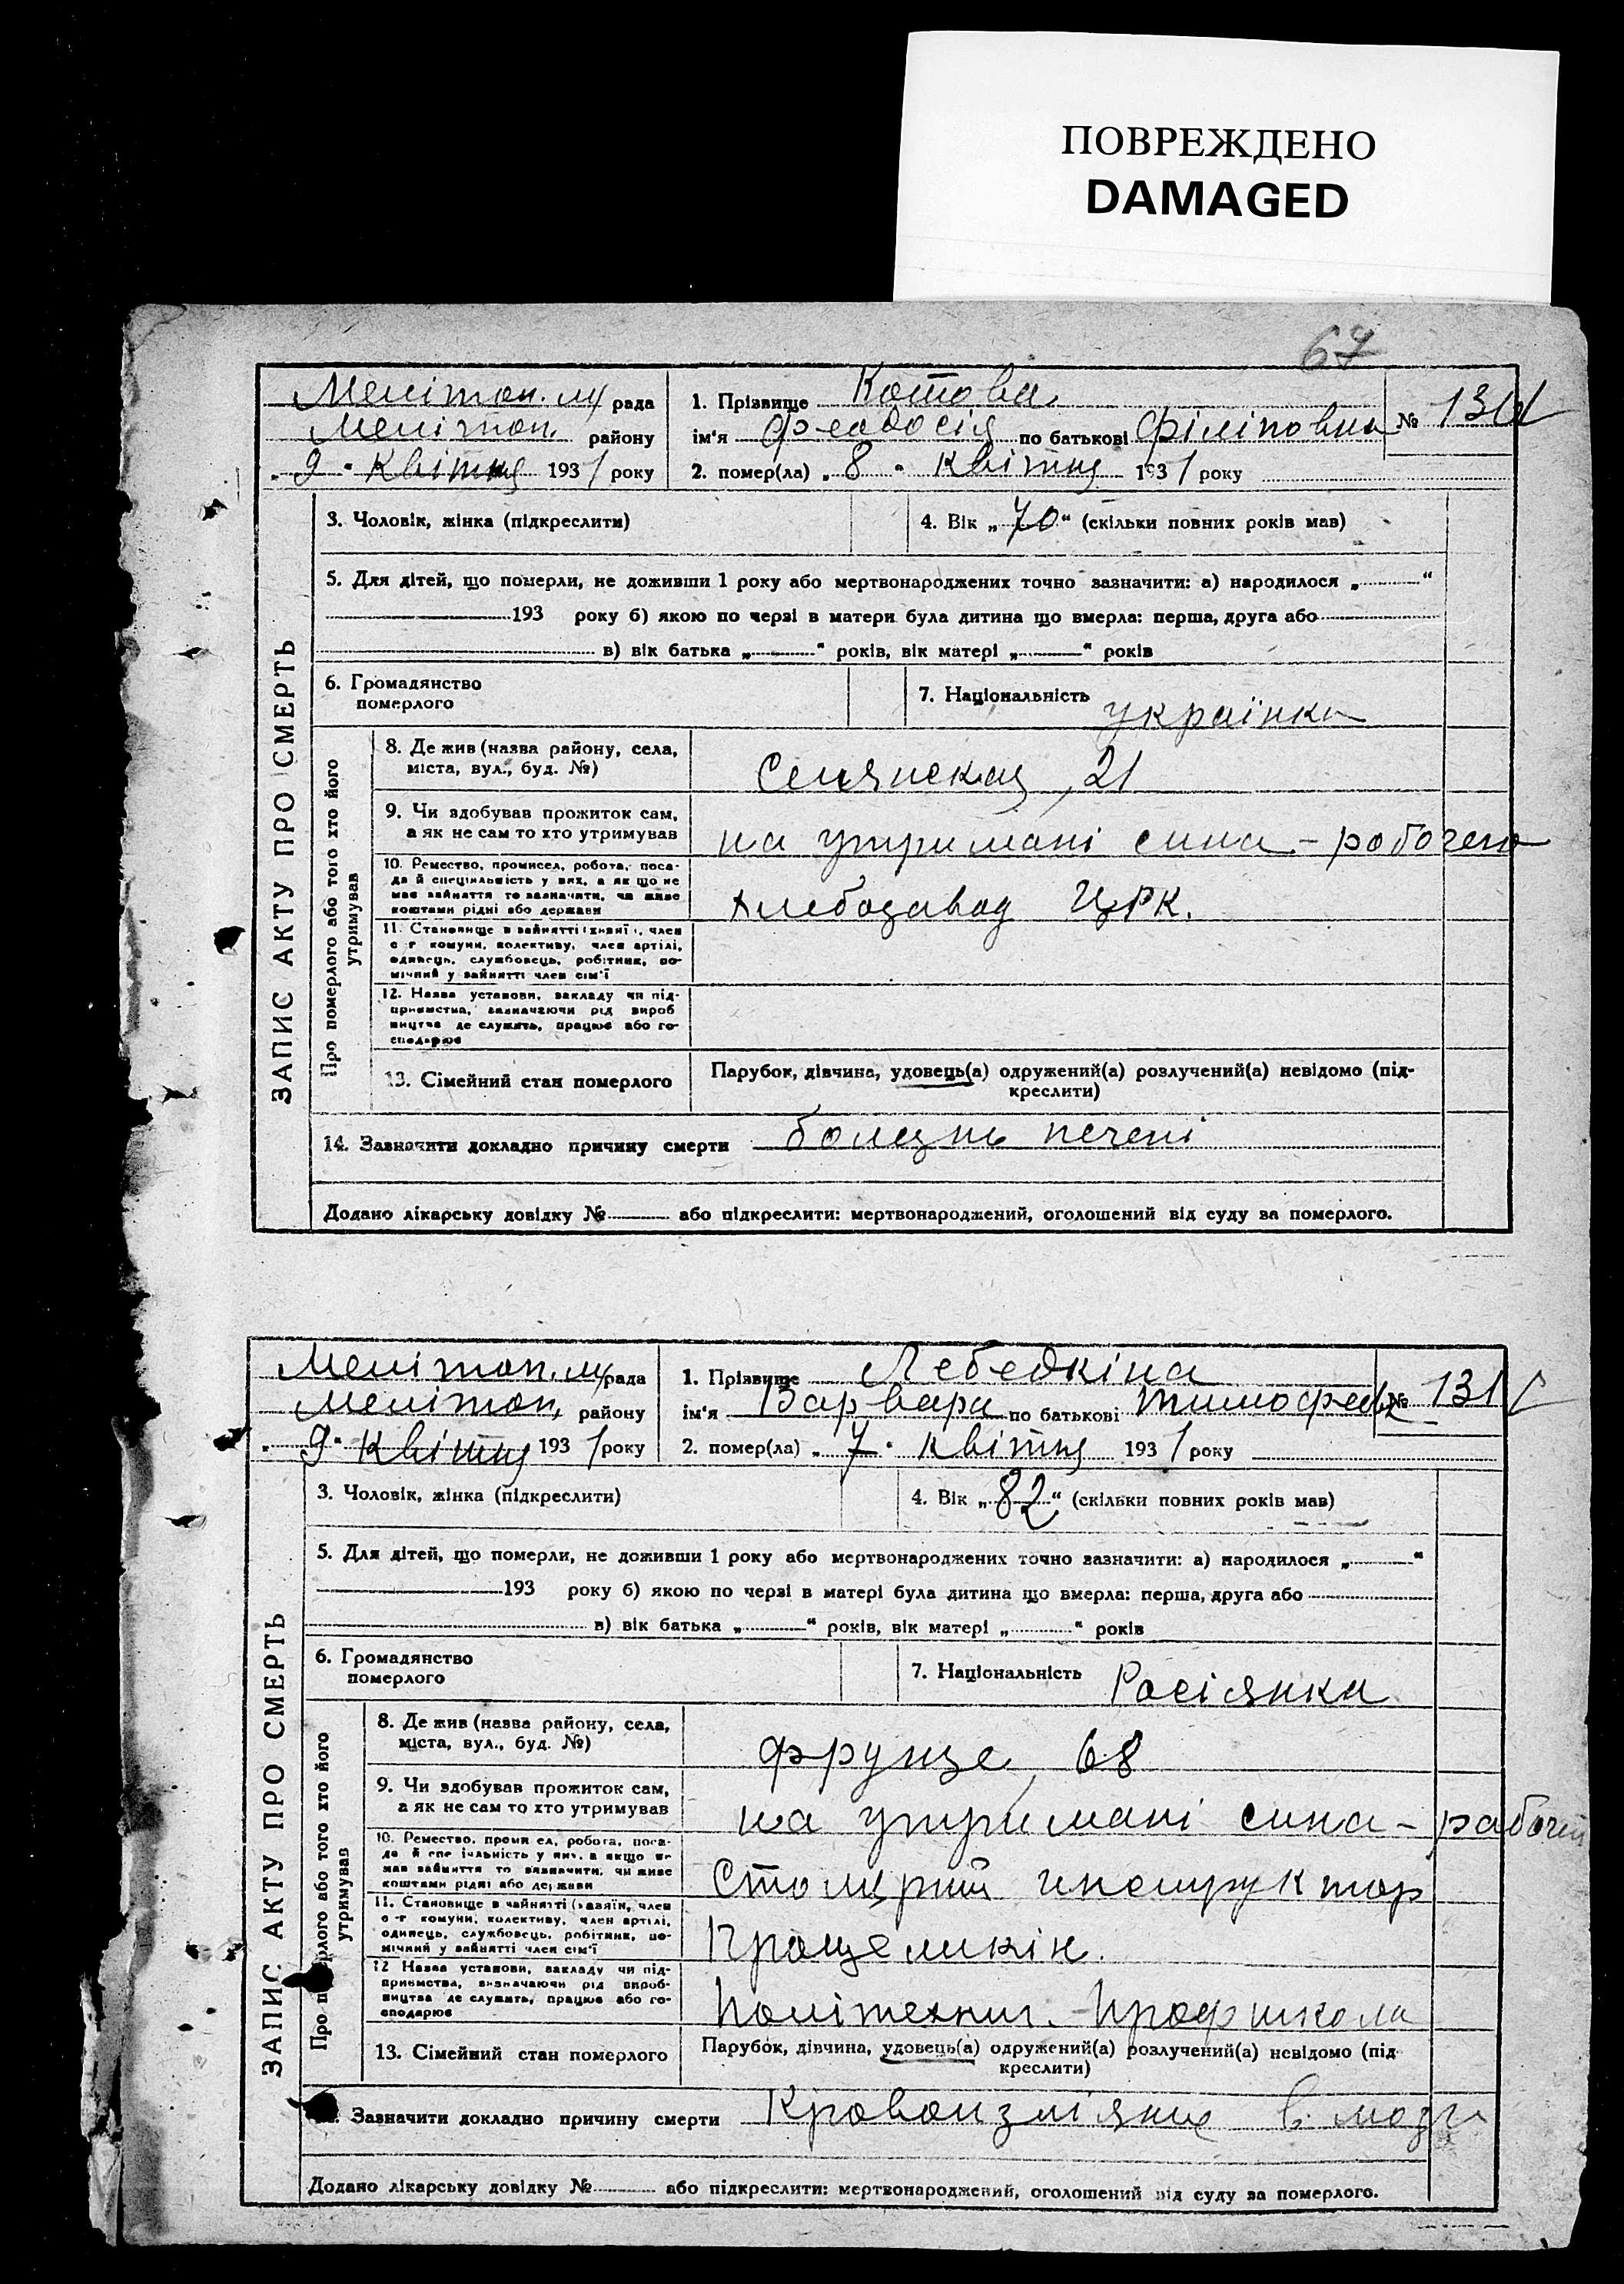 ПОВРЕЖДЕНО
DAMAGED
67
Мелітоп. м/рада
1. Прізвище Котова
№ 130
Мелітоп. району
ім'я Феодосія по батькові Філіповна
„ 9 " Квітня 1931 року
2. помер(ла) „ 8 " Квітня 1931 року
ЗАПИС АКТУ ПРО СМЕРТЬ
3. Чоловік, жінка (підкреслити)
4. Вік „ 70 " (скільки повних років мав)
5. Для дітей, що померли, не доживши 1 року або мертвонароджених точно зазначити: а) народилося „ "
193 року б) якою по черзі в матери була дитина що вмерла: перша, друга або
в) вік батька „ " років, вік матері „ " років
6. Громадянство
померлого
7. Національність українка
Про померлого або того хто його
утримував
8. Де жив (назва району, села,
міста, вул., буд. №)
Селянская, 21
9. Чи здобував прожиток сам,
а як не сам то хто утримував
на утримані сина - робочего
10. Ремество, промисел, робота, поса-
да й спеціальність у них, а як що не
мав зайняття то зазначити, чи живе
коштами рідні або держави
хлебозавод ЦРК.
11. Становище в зайнятті (хазяїн, член
с-г комуни, колективу, член артілі,
одинець, службовець, робітник, по-
мічний у зайнятті член сім'ї
12. Назва установи, закладу чи під-
приємства, зазначаючи рід вироб
ництва де служить, працює або го-
сподарює
13. Сімейний стан померлого
Парубок, дівчина, удовець(а) одружений(а) розлучений(а) невідомо (під-
креслити)
14. Зазначити докладно причину смерти болезнь печені
Додано лікарську довідку № або підкреслити: мертвонароджений, оголошений від суду за померлого.
Мелітоп. м/рада
1. Прізвище Лебедкіна
№ 131
Мелітоп. району
ім'я Варвара по батькові Тимофеев
„ 9 " Квітня 1931 року
2. помер(ла) „ 7 " Квітня 1931 року
ЗАПИС АКТУ ПРО СМЕРТЬ
3. Чоловік, жінка (підкреслити)
4. Вік „ 82 " (скільки повних років мав)
5. Для дітей, що померли, не доживши 1 року або мертвонароджених точно зазначити: а) народилося „ "
193 року б) якою по черзі в матері була дитина що вмерла: перша, друга або
в) вік батька „ " років, вік матері „ " років
6. Громадянство
померлого
7. Національність Росіянка
Про померлого або того хто його
утримував
8. Де жив (назва району, села,
міста, вул., буд. №)
Фрунзе, 68
9. Чи здобував прожиток сам,
а як не сам то хто утримував
на утримані сина - рабочий
10. Ремество, промисел, робота, поса-
да й спеціальність у них, а якщо не
мав зайняття то зазначити, чи живе
коштами рідні або держави
инструктор
11. Становище в зайнятті (хазяїн, член
с-г комуни, колективу, член артілі,
одинець, службовець, робітник, по-
мічний у зайнятті член сім'ї
12 Назва установи, закладу чи під-
приємства, зазначаючи рід вироб-
ництва де служить, працює або го-
сподарює
Політехнич. Профшкола
13. Сімейний стан померлого
Парубок, дівчина, удовець(а) одружений(а) розлучений(а) невідомо (під
креслити)
Зазначити докладно причину смерти Кровоизліяние в мозг
Додано лікарську довідку № або підкреслити: мертвонароджений, оголошений від суду за померлого.